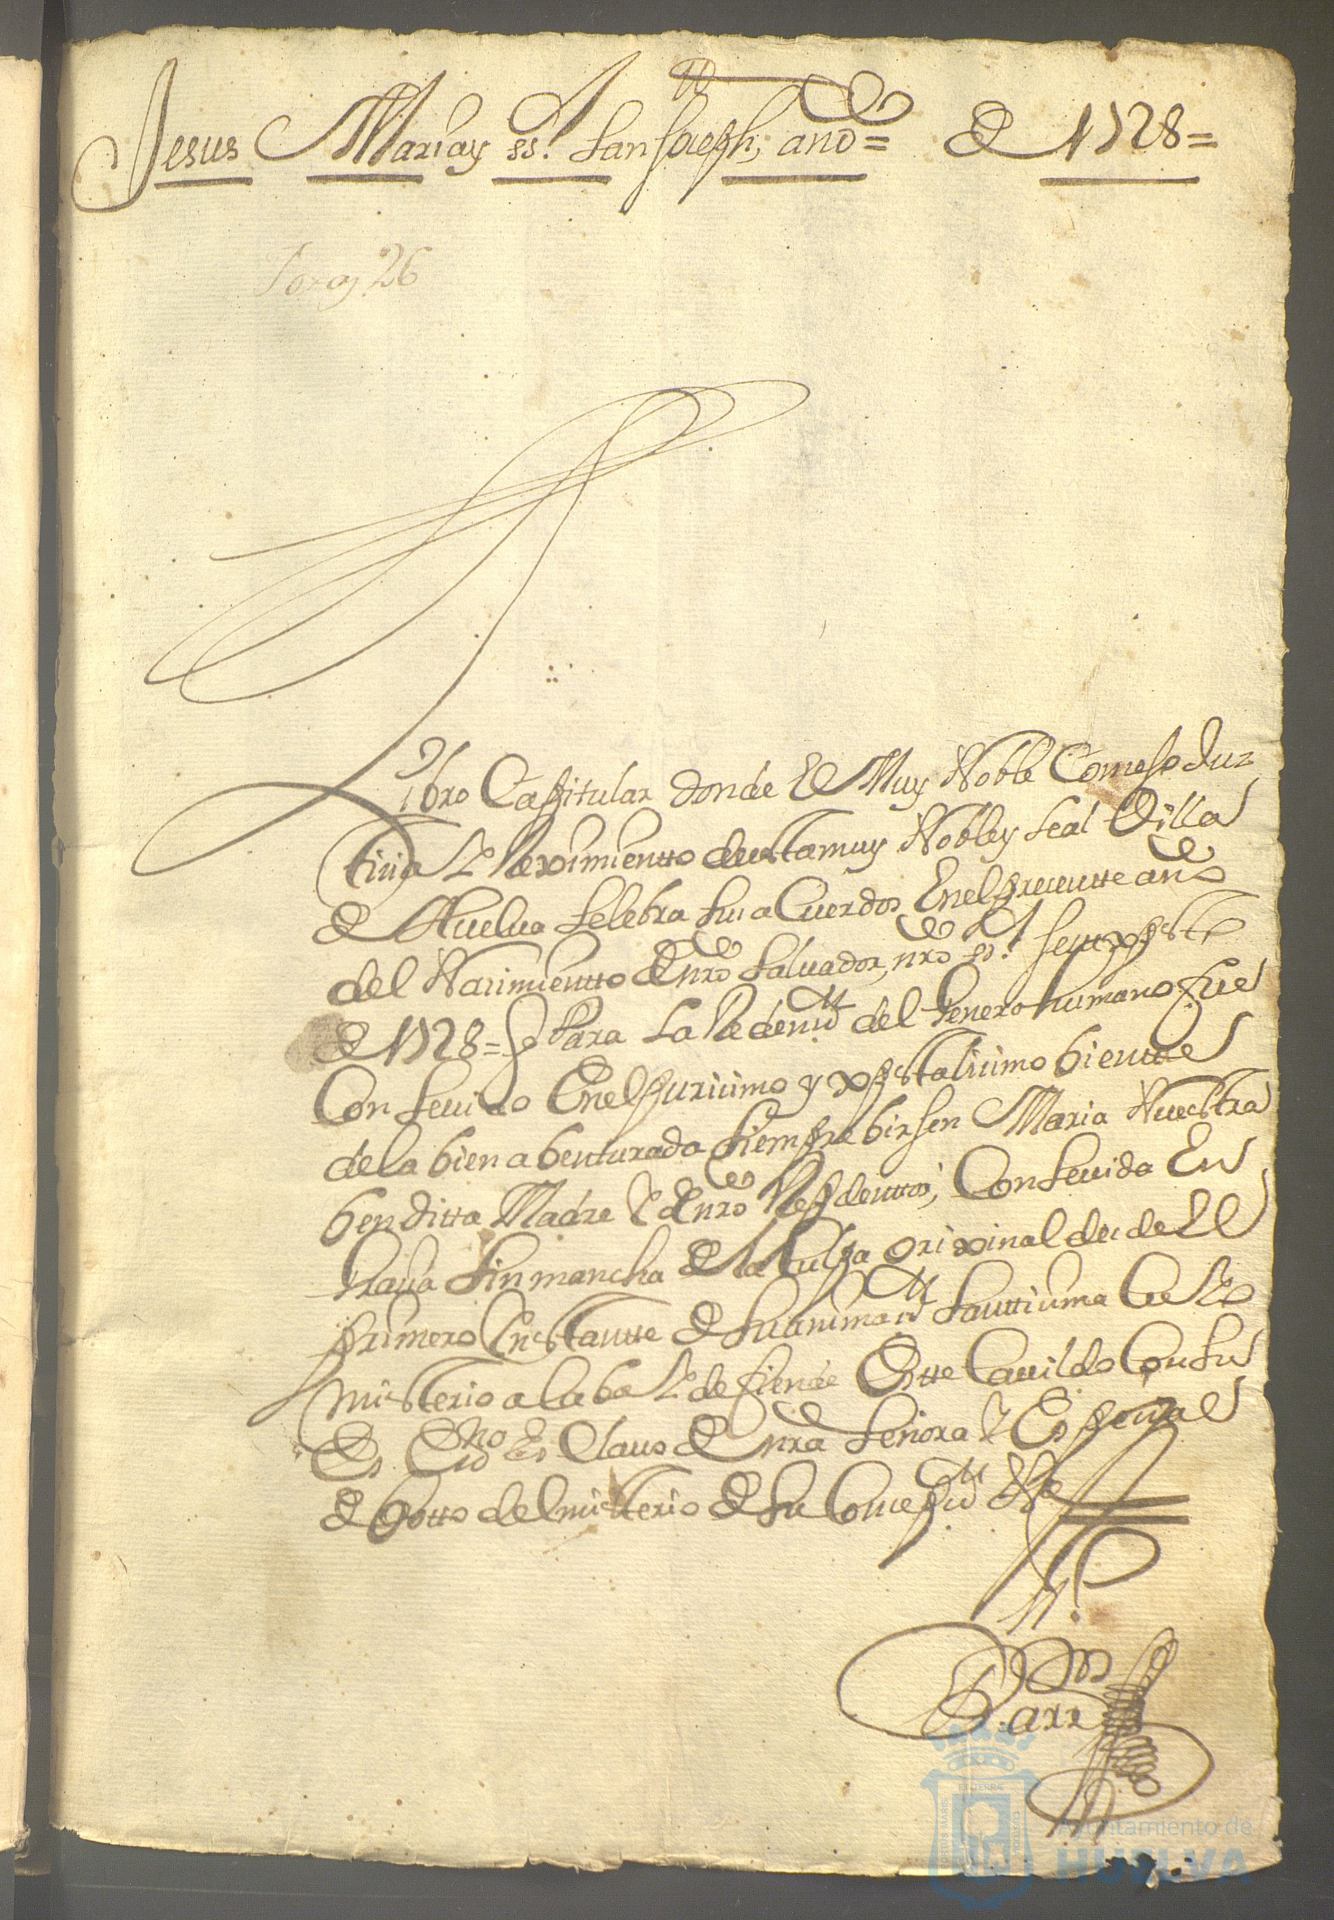 Jesus Maria y ss.ᵗ San Joseph, año = de 1728 =
26
Libro Capitular donde El Muy Noble Conseso Jus
ticia y Reximientto de estta muy Noble y Leal Villa
de Huelva Selebra Sus aCuerdos En el precentte año
del Nacimientto de nrō Salvador, nrō ss.ʳ
de 1728 = Para La Redenc.ⁿ del Genero humano fue
Consevido En el puricimo y bienttre
de la bien abenturada Siempre birsen Maria Nuestra
benditta Madre y de nrō Consevida En
Gracia Sin mancha de la Culpa orixinal desde El
primero Instantte de Su animac.ⁿ Santtisima Cu Ɩo
misterio alaba y defiende Estte Cavildo Con Su
Es.ⁿᵒ Esclavo de nrā Señora y Espesial
deVotto del misterio de Su Consepc.ⁿ
Barr
Ayuntamiento de
HUELVA